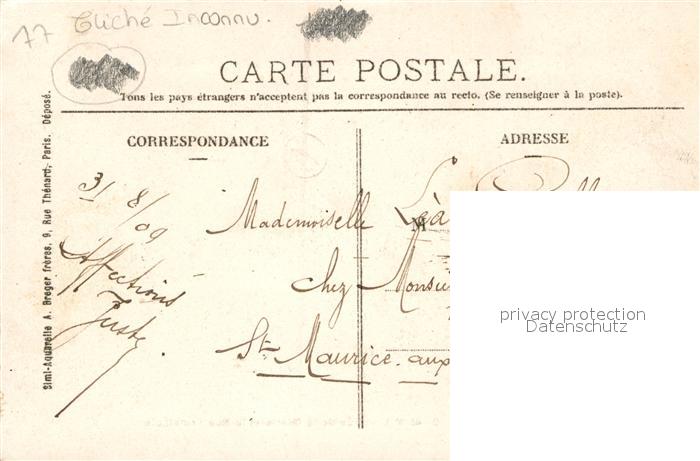 77 Cliché Inconnu.
CARTE POSTALE.
Tous les pays étrangers n'acceptent pas la correspondance au recto. (Se renseigner à la poste).
CORRESPONDANCE
ADRESSE
Simi-Aquarelle A. Breger frères, 9, Rue Thénard, Paris. Déposé.
31/8/09
Affections
Juste
Mademoiselle Léa
chez Monsieu
St Maurice aux
privacy protection
Datenschutz